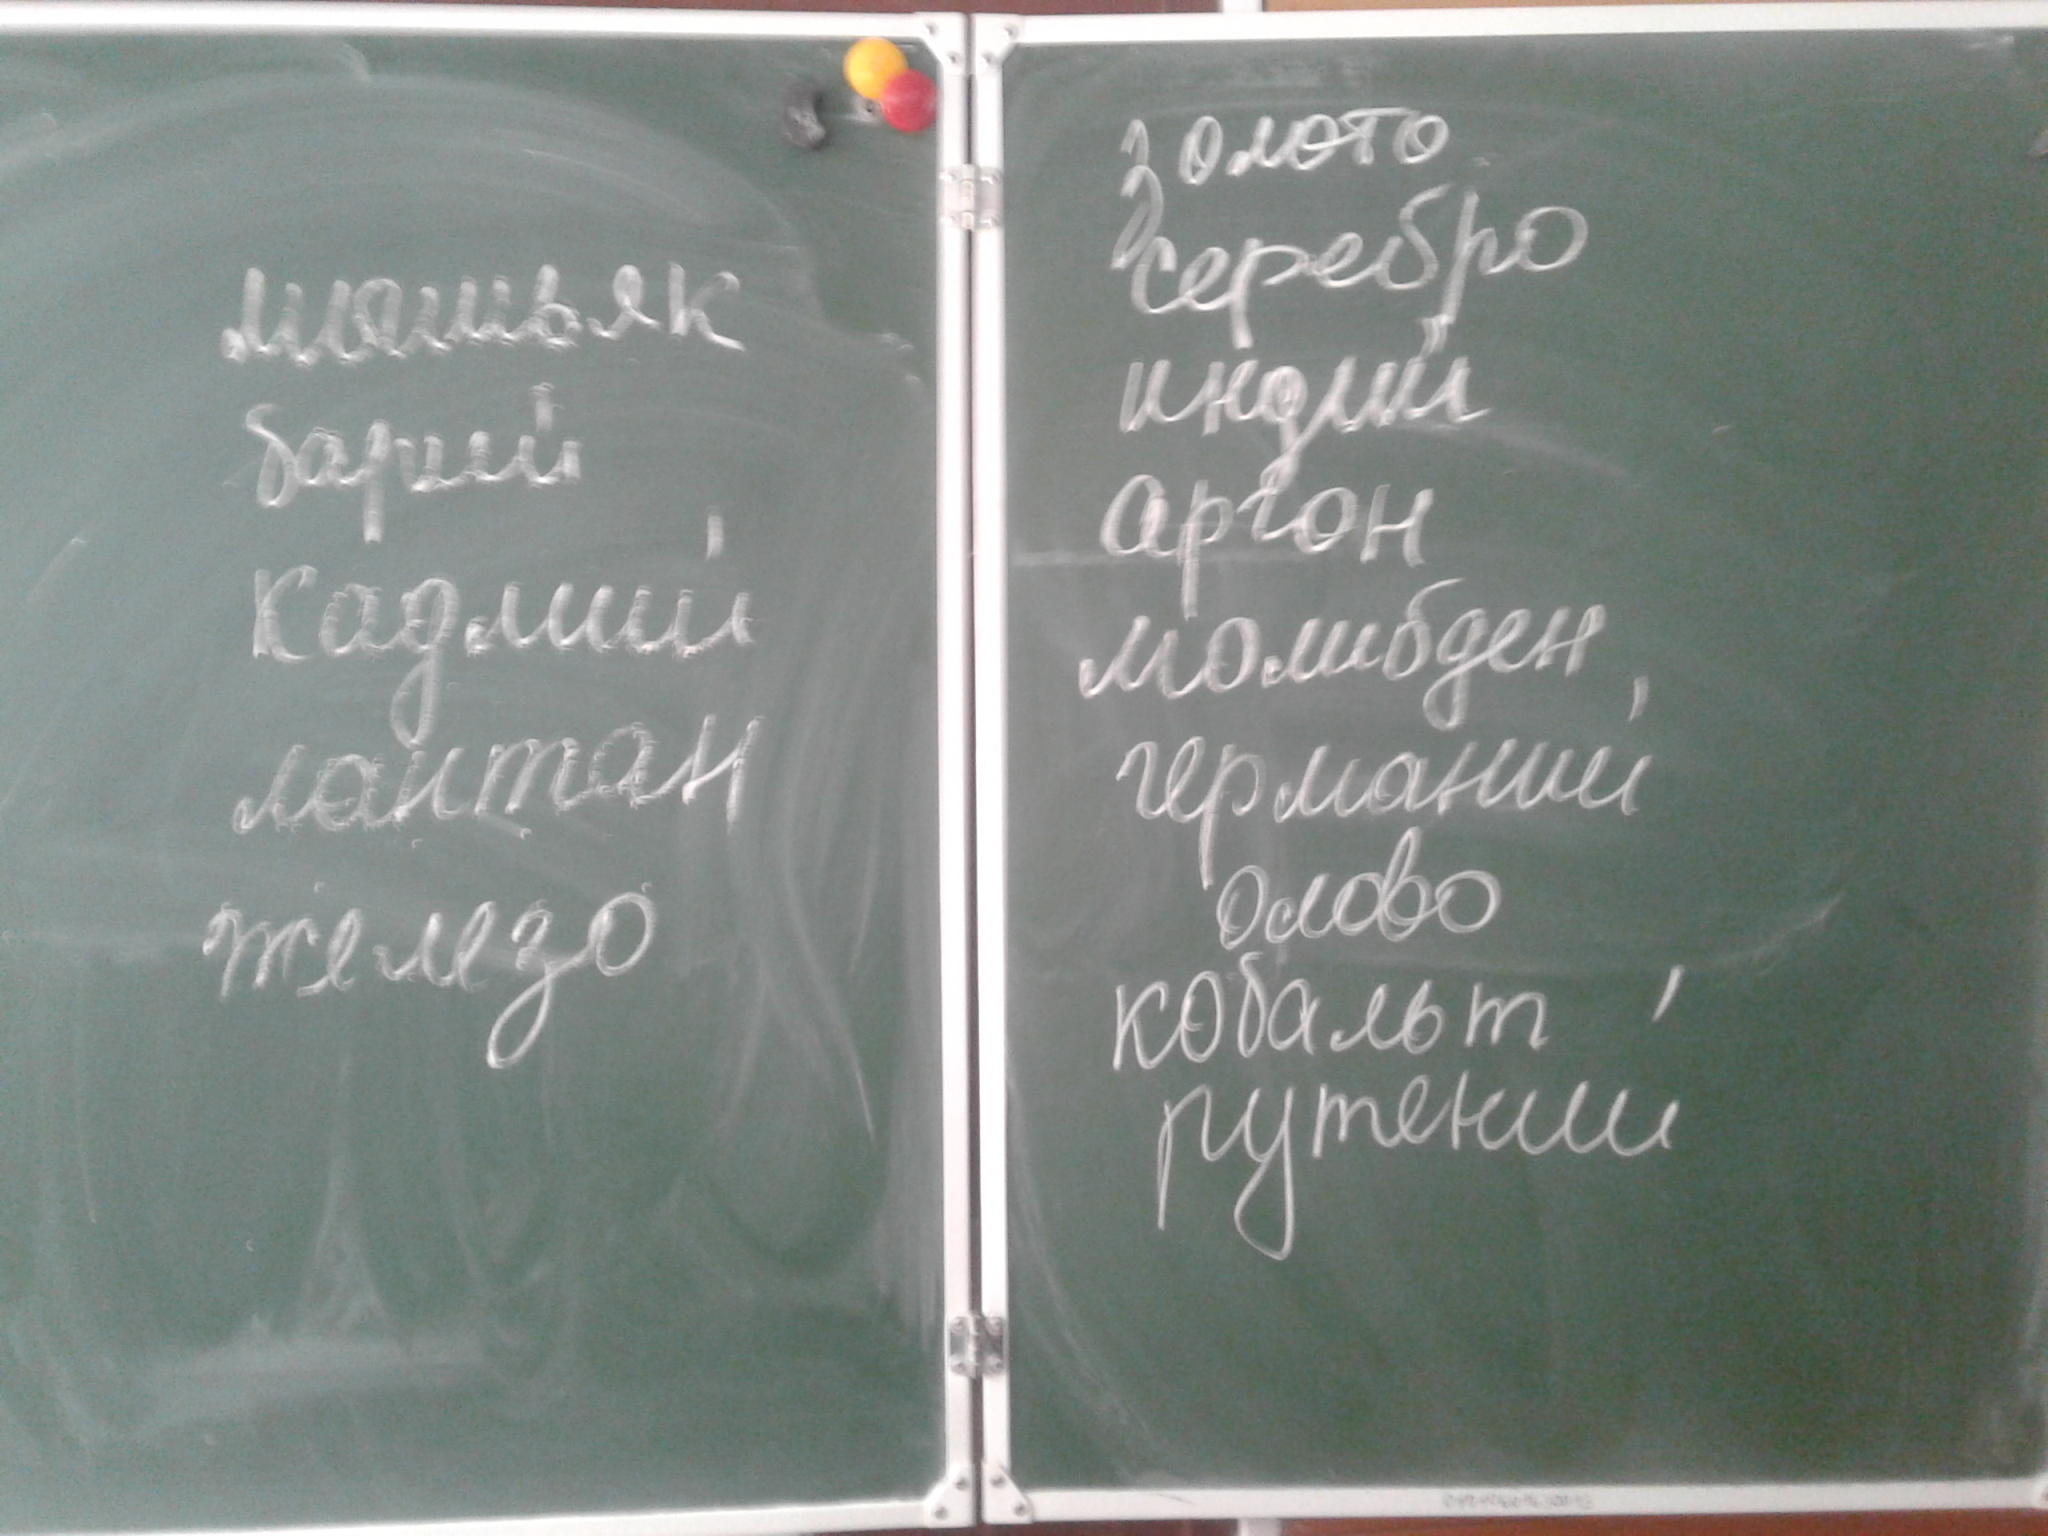 мышьяк
барий
кадмий
лантан
железо
золото
серебро
индий
аргон
молибден
германий
олово
кобальт
рутений